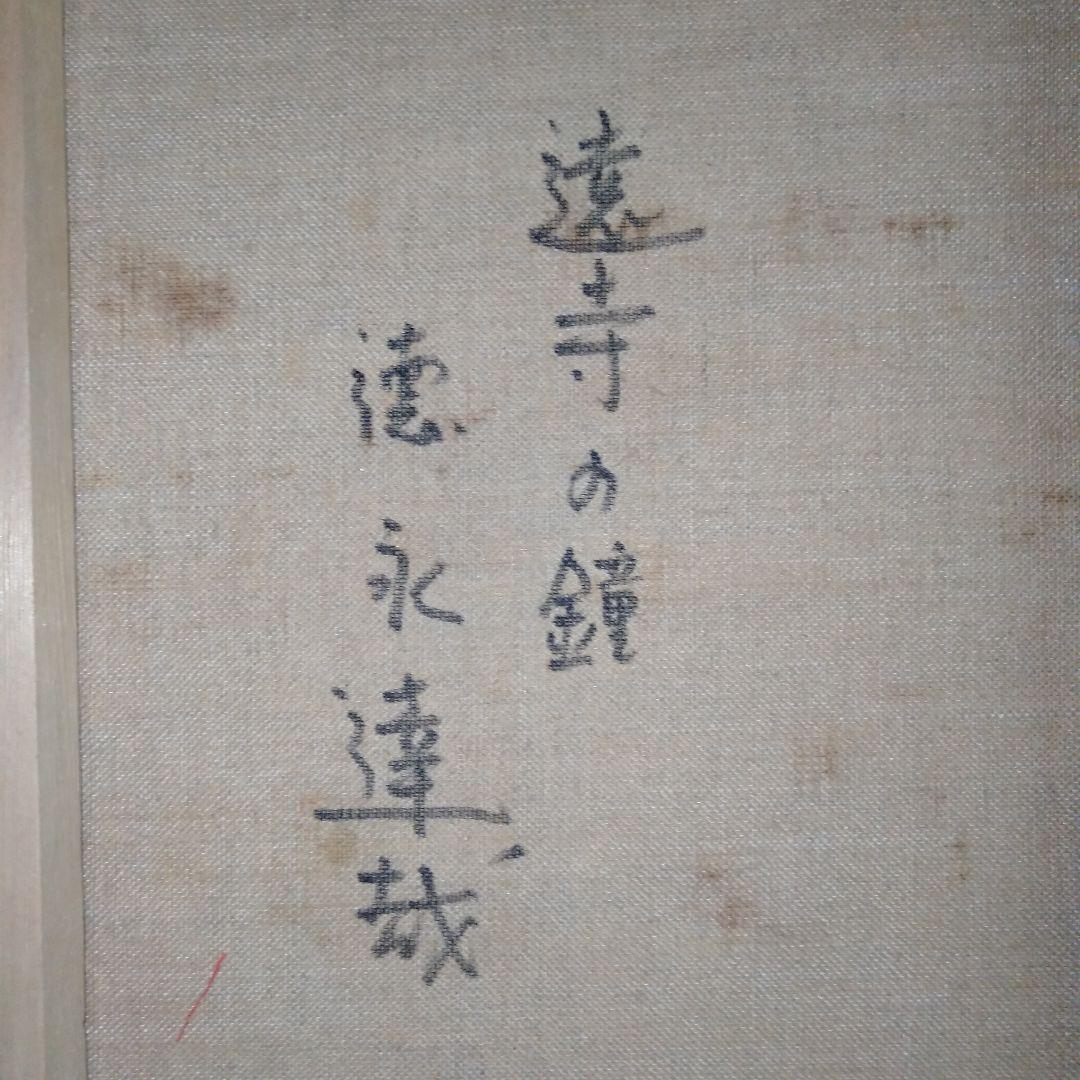 遠寺の鐘
徳永達哉